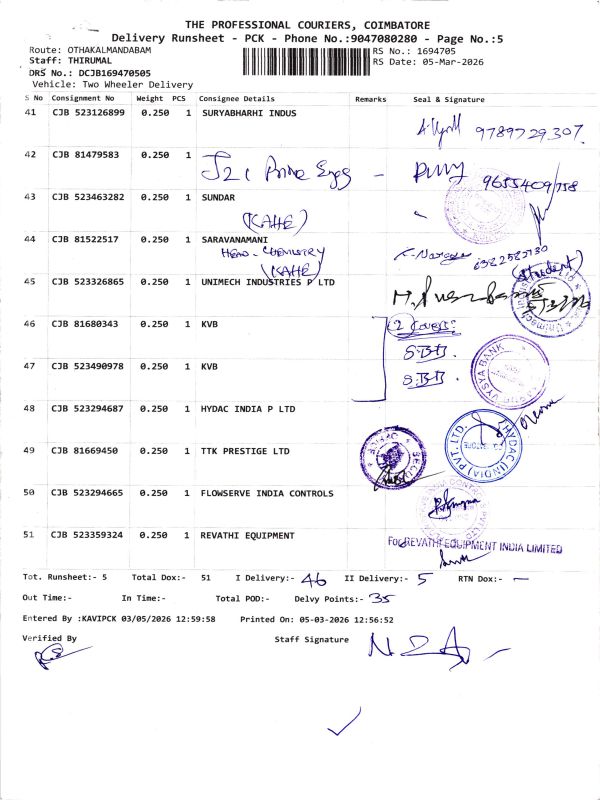 THE PROFESSIONAL COURIERS, COIMBATORE
Delivery Runsheet - PCK - Phone No.:9047080280 - Page No.:5
Route: OTHAKALMANDABAM
RS No.: 1694705
Staff: THIRUMAL
RS Date: 05-Mar-2026
DRS No.: DCJB169470505
Vehicle: Two Wheeler Delivery
S No Consignment No Weight PCS Consignee Details Remarks Seal & Signature
41 CJB 523126899 0.250 1 SURYABHARHI INDUS
9789729307.
42 CJB 81479583 0.250 1
J21 Prime Engg -
9655409758
43 CJB 523463282 0.250 1 SUNDAR
(KAHE)
44 CJB 81522517 0.250 1 SARAVANAMANI
HEAD - CHEMISTRY
(KAHE)
(Student)
45 CJB 523326865 0.250 1 UNIMECH INDUSTRIES P LTD
46 CJB 81680343 0.250 1 KVB
(2) Covers:
S.B.B.
47 CJB 523490978 0.250 1 KVB
S.B.B.
VYSYA BANK
48 CJB 523294687 0.250 1 HYDAC INDIA P LTD
HYDAC (INDIA) PVT. LTD.
49 CJB 81669450 0.250 1 TTK PRESTIGE LTD
50 CJB 523294665 0.250 1 FLOWSERVE INDIA CONTROLS
51 CJB 523359324 0.250 1 REVATHI EQUIPMENT
For REVATHI EQUIPMENT INDIA LIMITED
Tot. Runsheet:- 5 Total Dox:- 51 I Delivery:- 46 II Delivery:- 5 RTN Dox:- —
Out Time:- In Time:- Total POD:- Delvy Points:- 35
Entered By :KAVIPCK 03/05/2026 12:59:58 Printed On: 05-03-2026 12:56:52
Verified By
Staff Signature